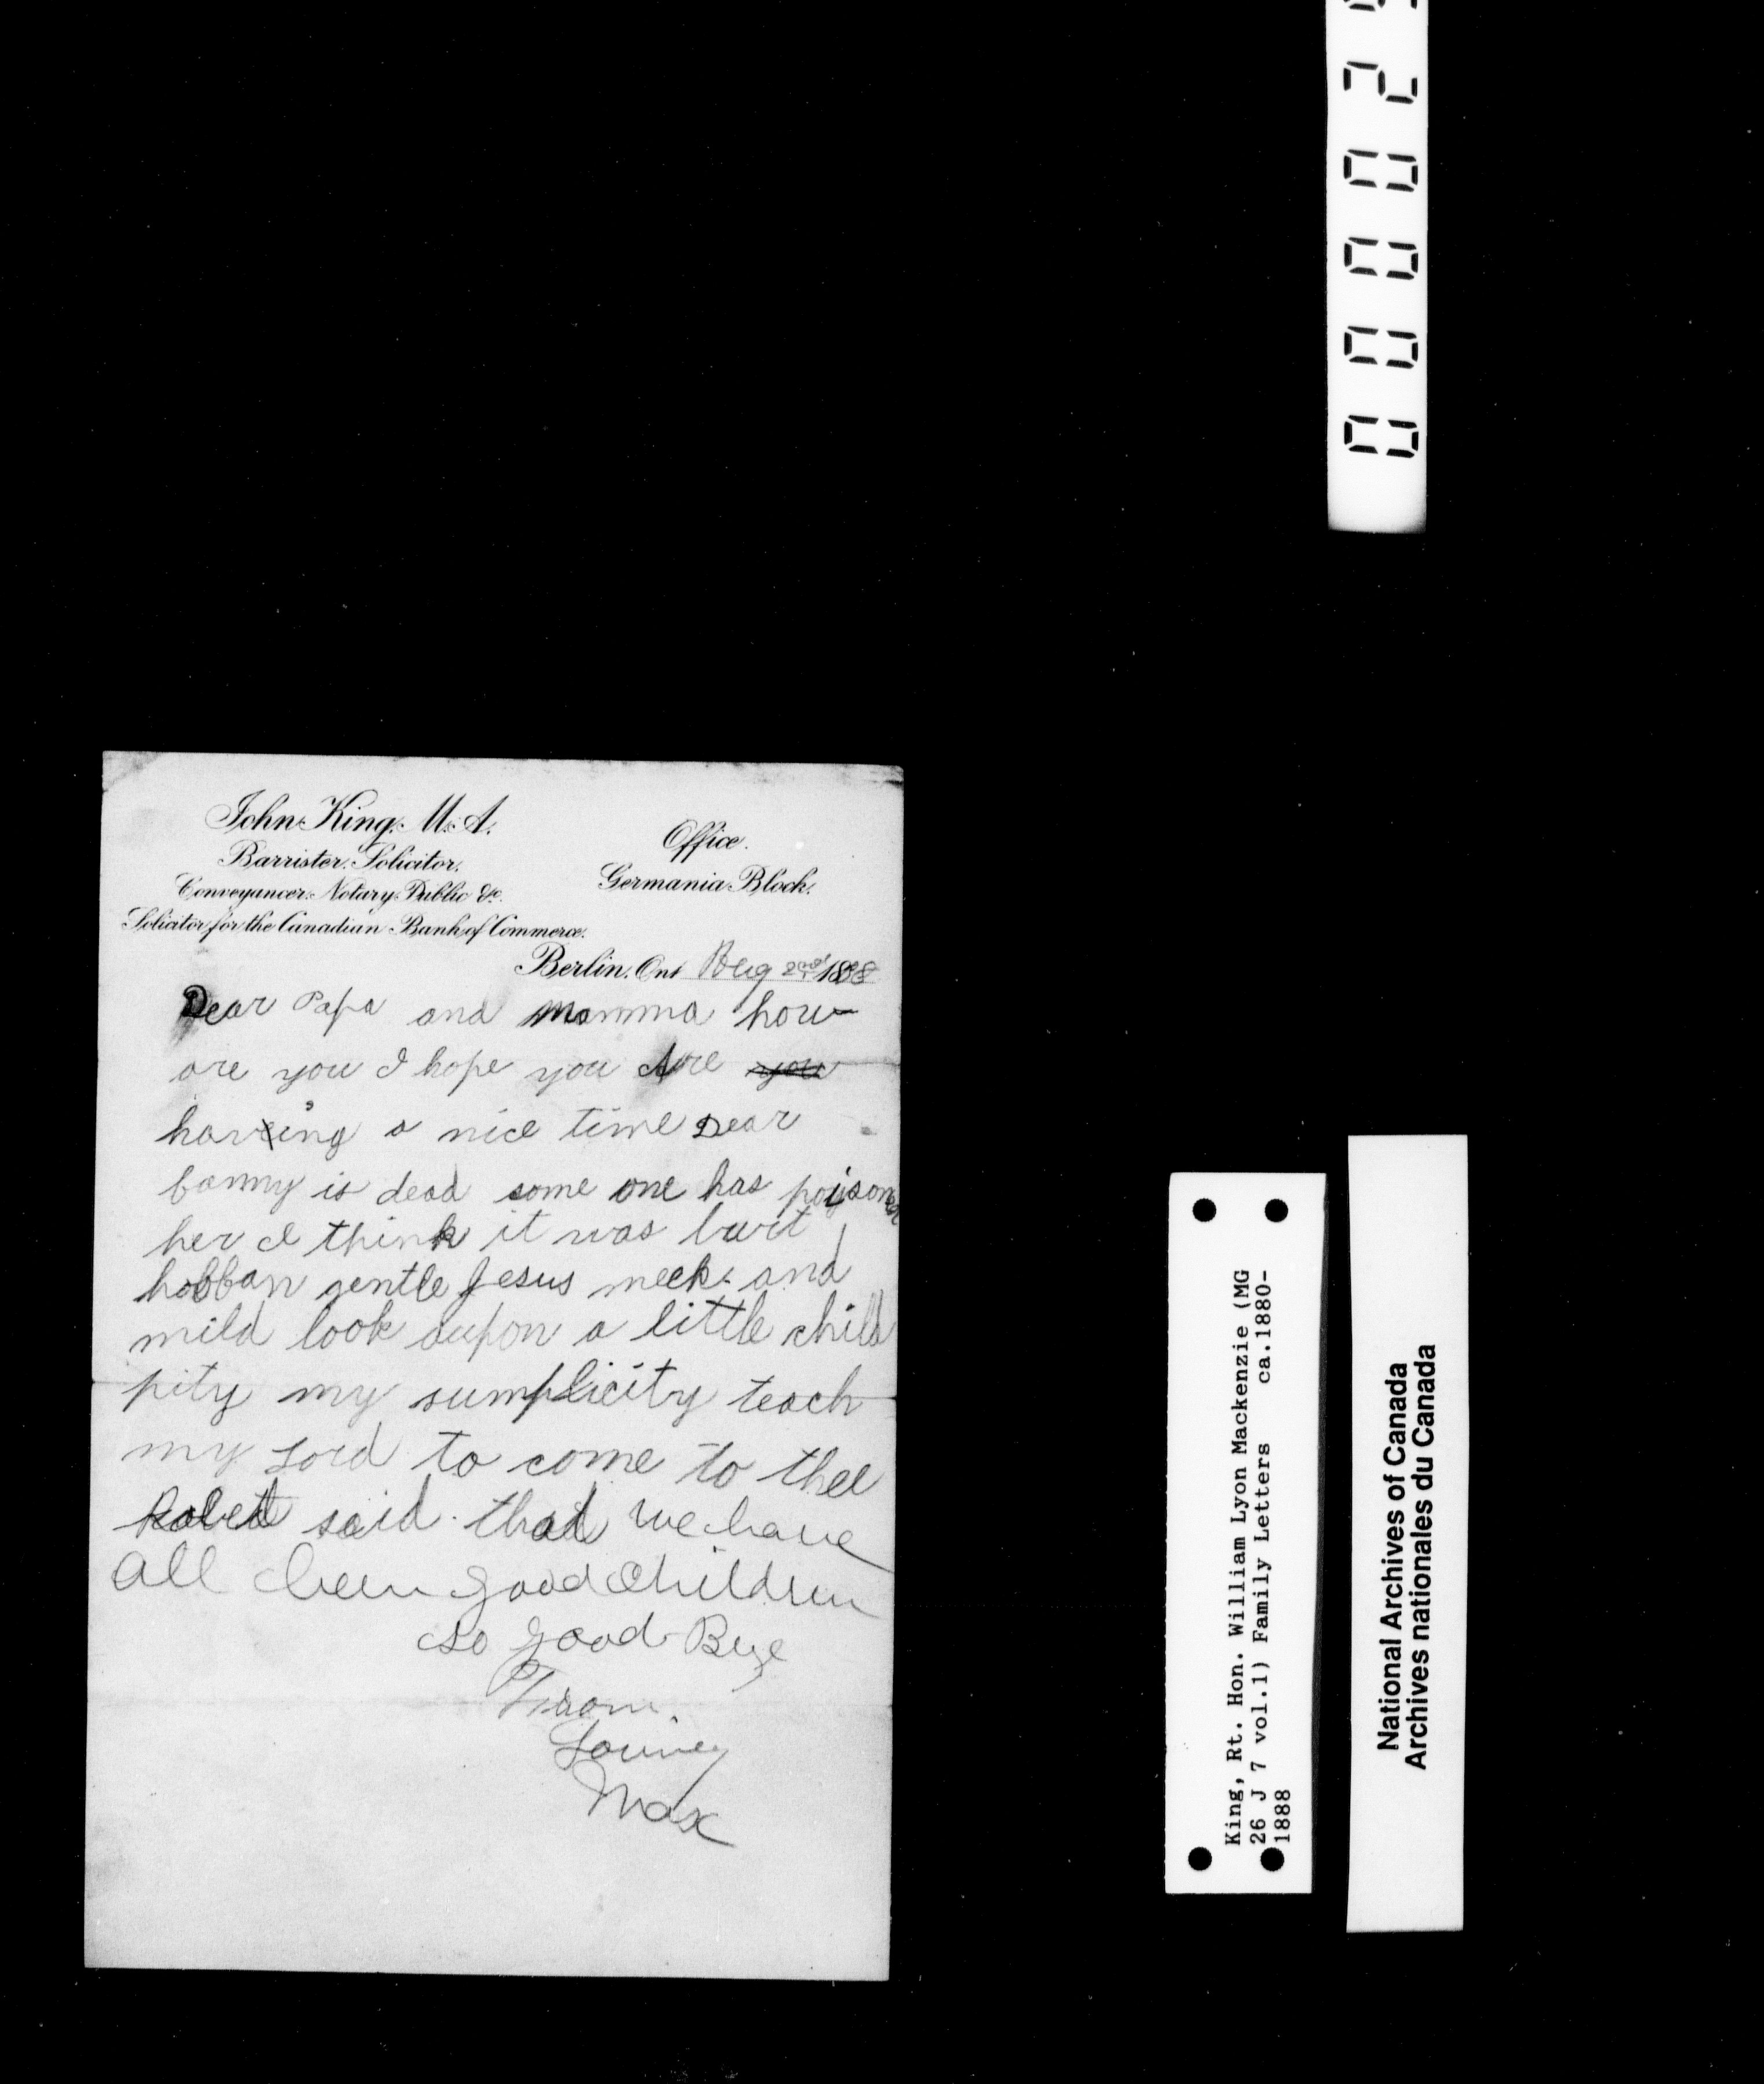 John King, M.A.
Barrister, Solicitor,
Conveyancer, Notary Public &c.
Solicitor for the Canadian Bank of Commerce.
Office.
Germania Block.
Berlin, Ont Aug 2nd 1888
Dear Papa and mamma how
are you I hope you Are you
having a nice time Dear
fanny is dead some one has poyison
her I think it was burt
hobban gentle Jesus meek and
mild look aupon a little child
pity my sumplicity teach
my Lord to come to thee
Robett said that we have
all been good children
so good Bye
From
Louiney
Max
King, Rt. Hon. William Lyon Mackenzie (MG
26 J 7 vol.1) Family Letters ca.1880-
1888
National Archives of Canada
Archives nationales du Canada
00002